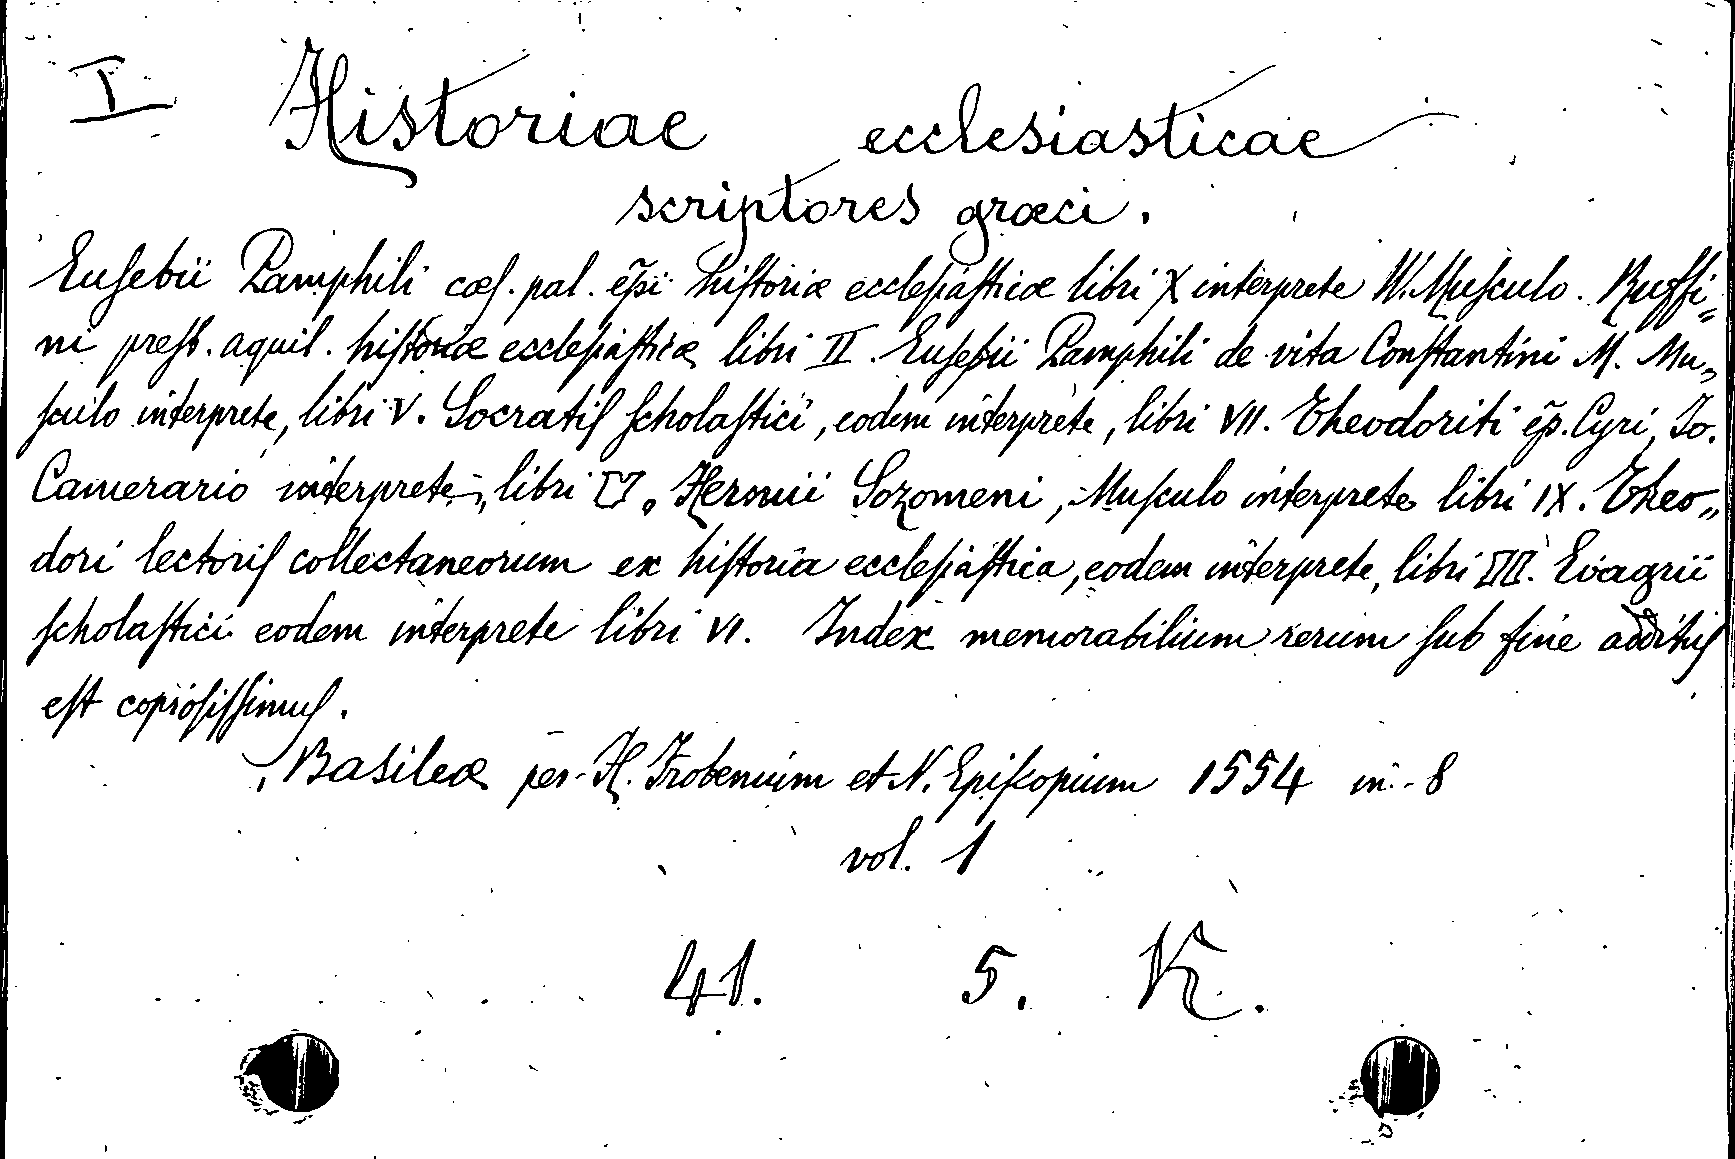 I Historiae ecclesiasticae
scriptores græci.
Eusebii Pamphili cæs. pal. ep̃i historiæ ecclesiasticæ libri X interprete W. Musculo. Ruffi=
ni presb. aquil. historiæ ecclesiasticæ libri II. Eusebii Pamphili de vita Constantini M. Mu„
sculo interprete, libri V. Socratis scholastici, eodem interprete, libri VII. Theodoriti ep̃. Cyri, Jo.
Camerario interprete, libri V. Hermii Sozomeni, Musculo interprete libri IX. Theo„
dori lectoris collectaneorum ex historia ecclesiastica, eodem interprete, libri II. Evagrii
scholastici eodem interprete libri VI. Index memorabilium rerum sub fine additus
est copiosissimus.
Basileæ per H. Frobenium et N. Episcopium 1554 in-8
vol. 1
41. 5. K.